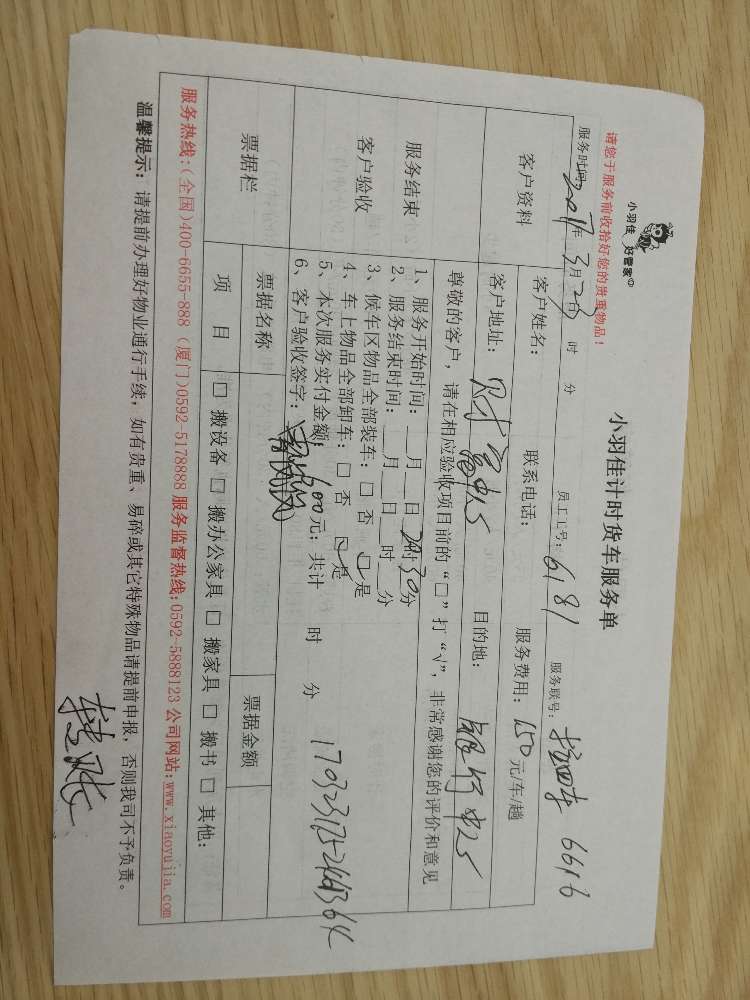 小羽佳 好管家
小羽佳计时货车服务单
请您于服务前收拾好您的贵重物品！
服务时间: 年3月23日 时 分 员工工号: 6181 服务联号: 6616
客户资料 客户姓名: 联系电话: 服务费用: 150元/车/趟
客户地址: 财富中心 目的地: 银行中心
尊敬的客户，请在相应验收项目前的“□”打“√”，非常感谢您的评价和意见
服务结束
客户验收
1、服务开始时间: 月 日 时30分
2、服务结束时间: 月 日 时 分
3、候车区物品全部装车: □ 否 □ 是
4、车上物品全部卸车: □ 否 □ 是
5、本次服务实付金额: 600元; 共计 时 分
6、客户验收签字:
票据栏 票据名称 票据金额
项 目 □ 搬设备 □ 搬办公家具 □ 搬家具 □ 搬书 □ 其他:
服务热线:(全国)400-6655-888 (厦门)0592-5178888 服务监督热线:0592-5888123 公司网站:www.xiaoyujia.com
温馨提示: 请提前办理好物业通行手续，如有贵重、易碎或其它特殊物品请提前申报，否则我司不予负责。